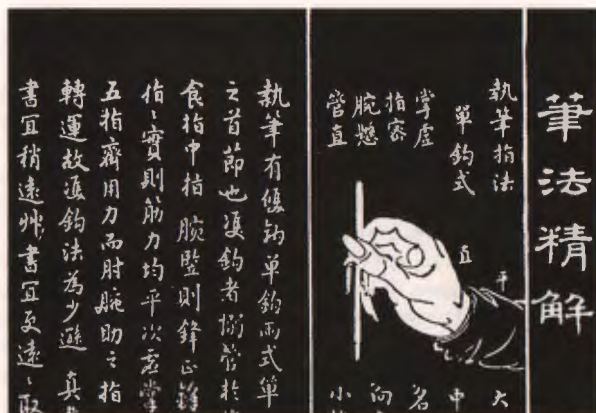 筆法精解
執筆指法
單鈎式
掌虛
指密
腕懸
管直
直
平
大
中
名
向
小
執筆有雙鈎單鈎兩式單
之首節也雙鈎者擫管於
食指中指腕豎則鋒正鋒
指指實則筋力均平次虛掌
五指齊用力而肘腕助之指
轉運故雙鈎法為少遜真書
書宜稍遠艸書宜更遠遠取